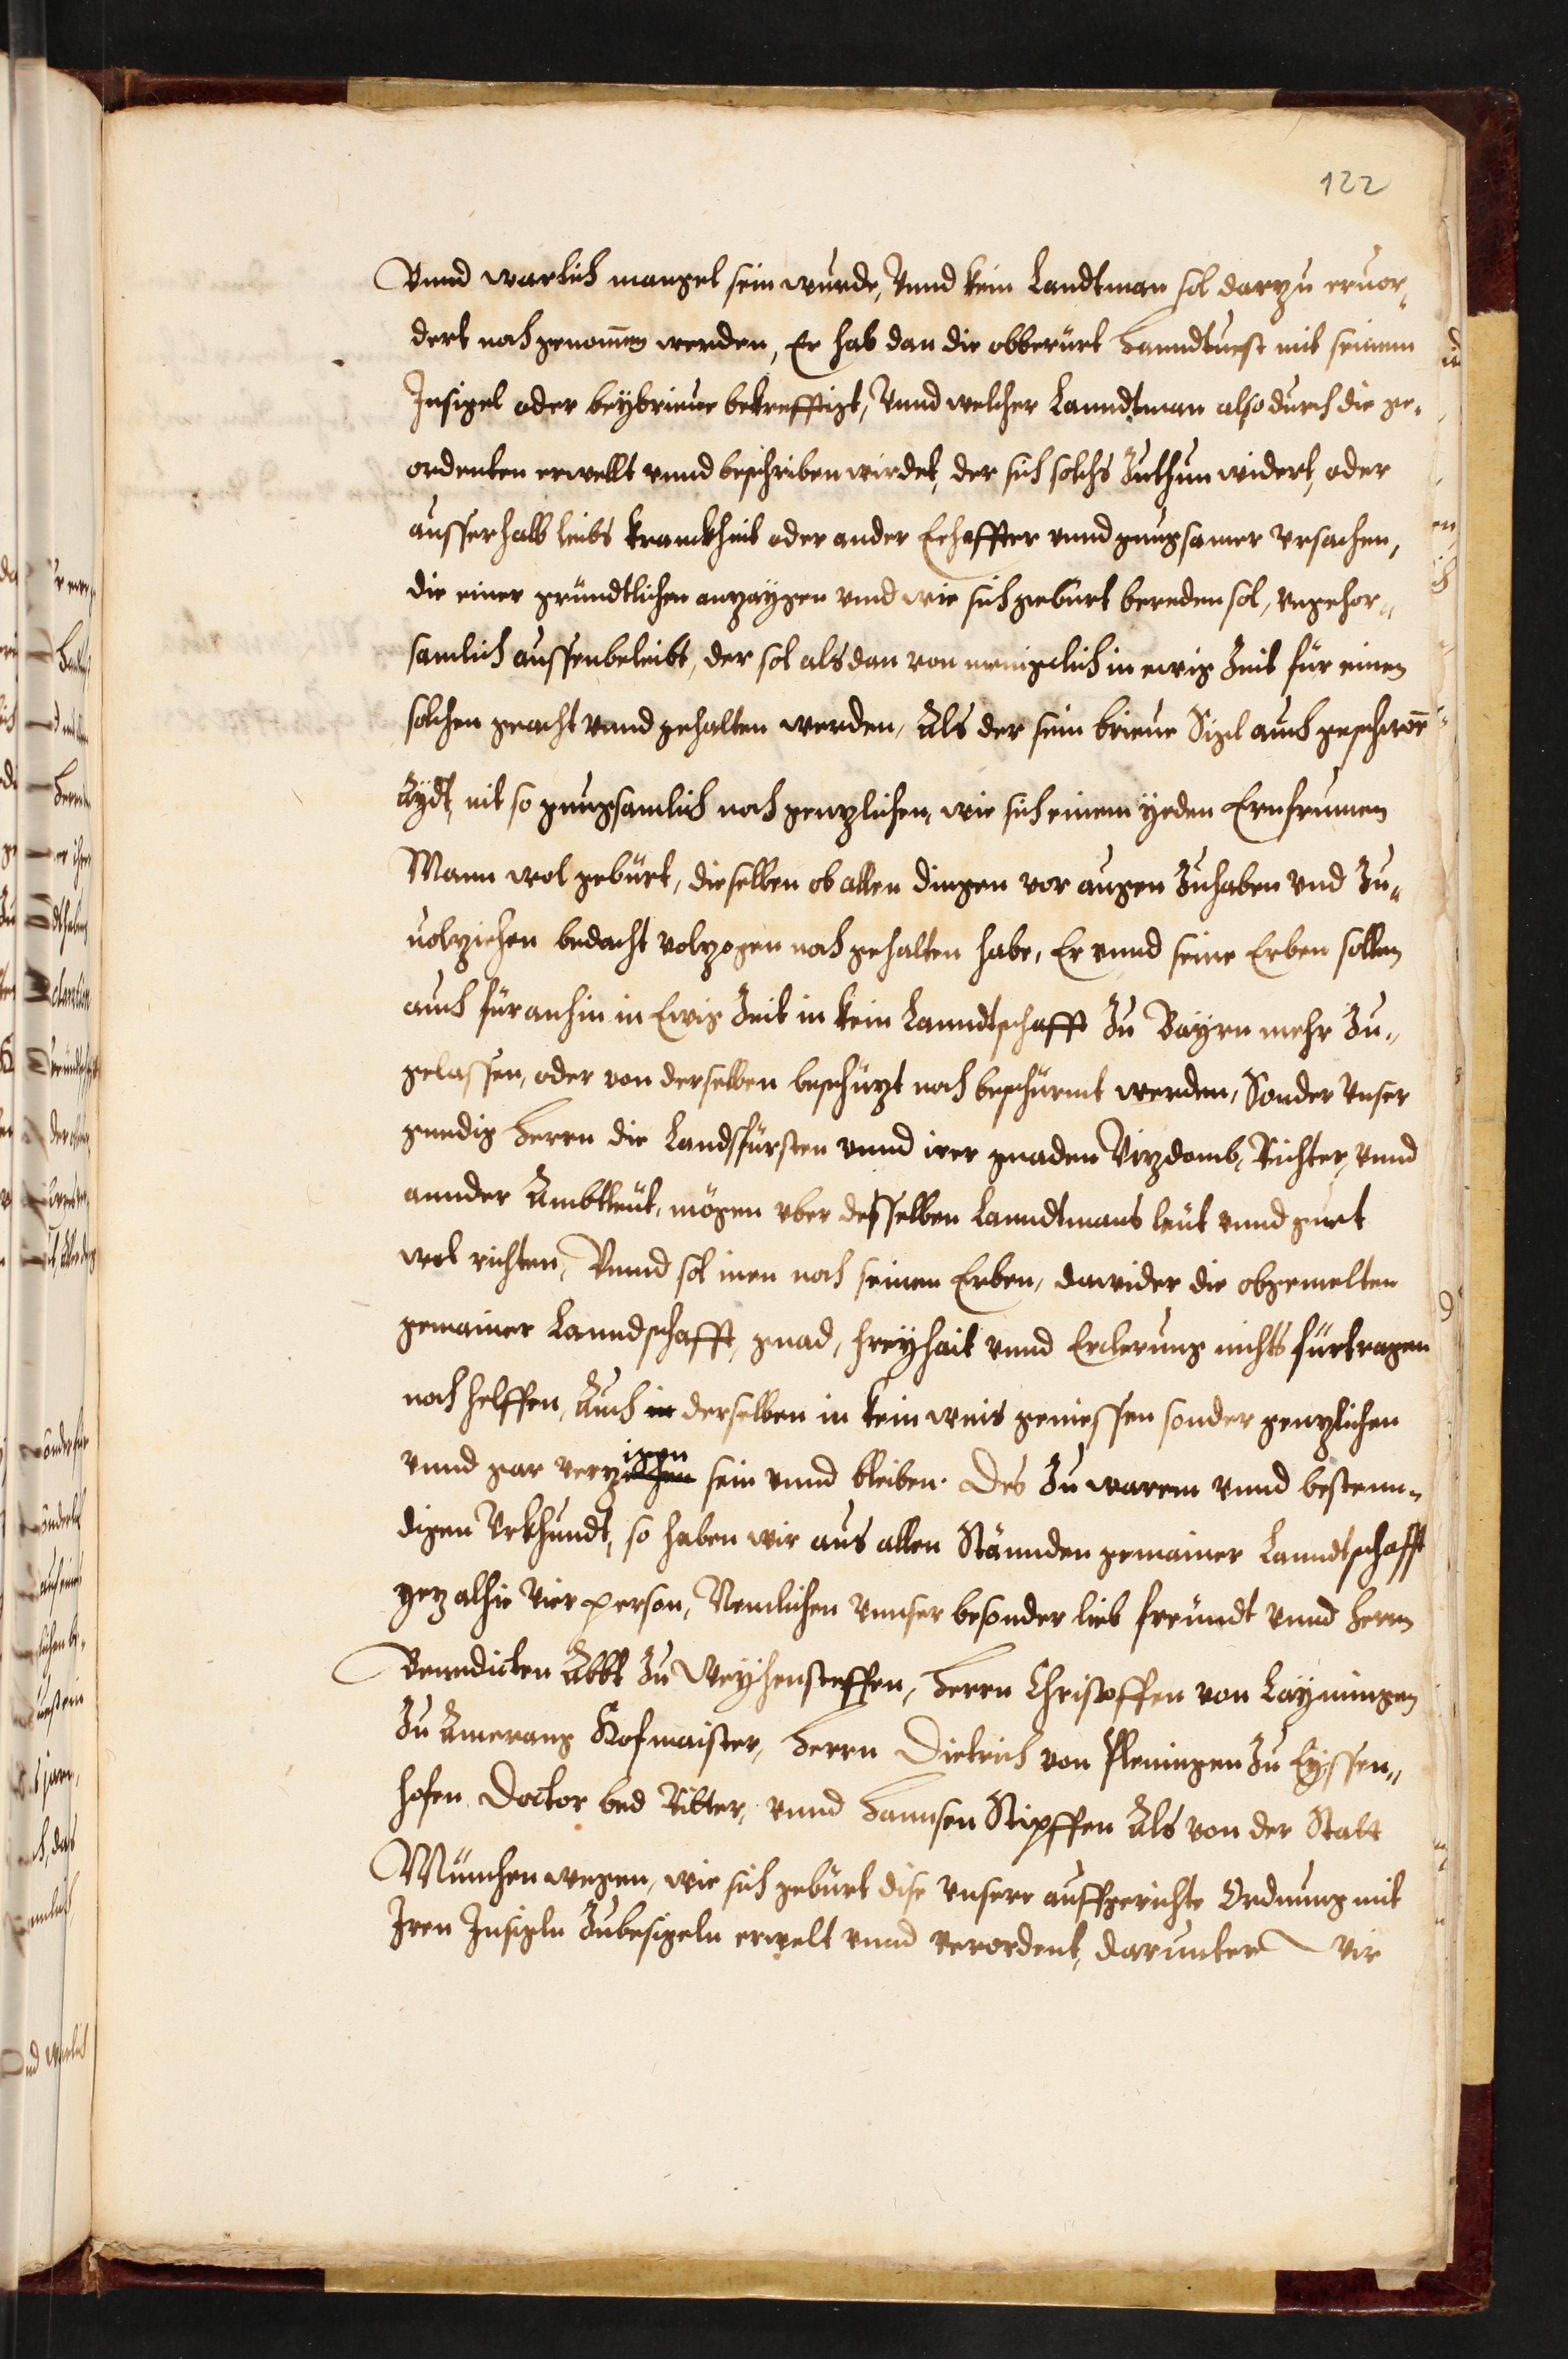 122
Vnnd warlich mangel sein wurde, Vnnd kein Landtman sol darzu eruor„
dert noch genom̄en werden, Er hab dan die obberürt Hanndtuest mit seinem
Insigel oder beybrieue bekrefftigt, Vnnd welcher Lanndtman also durch die ge„
ordenten erwellt vnnd beschriben wirdet, der sich solchs Zuthun widert, oder
ausserhalb leibs kranckheit oder ander Eehaffter vnnd gnugsamer vrsachen,
die einer gründtlichen anzaygen vnd wie sich gebürt bereden sol, vngehor„
samlich aussenbeleibt, der sol alsdan von menigclich in ewig Zeit für einen
solchen geacht vnnd gehalten werden, Als der sein brieue Sigl auch geschworn̄
Aydt, nit so gnugsamlich noch genzlichen, wie sich einem yeden Ernfrumen
Mann wol gebürt, dieselben ob allen dingen vor augen Zuhaben vnd Zu„
uolziehen bedacht volzogen noch gehalten habe, Er vnnd seine Erben sollen
auch füranhin in Ewig Zeit in kein Lanndtschafft Zu Bayrn mehr Zu„
gelassen, oder von derselben beschüzt noch beschürmt werden, Sonder Vnser
gnedig Herrn die Landsfürsten vnnd irer gnaden Vizdomb, Richter, vnnd
annder Ambtleut, mögen vber desselben Lanndtmans leut vnnd guet
wol richten, Vnnd sol inen noch seinen Erben, dawider die obgemelten
gemainer Lanndschafft, gnad, freyhait vnnd Erclerung nichts fürtragen
noch helffen, Auch in derselben in kein weis geniessen sonder genzlichen
vnnd gar verzigen sein vnnd bleiben. Des Zu warem vnnd bestenn„
digen Vrkhundt, so haben wir aus allen Stännden gemainer Lanndtschafft
yez alhie Vier person, Nemlichen Vnnser besonder lieb freundt vnnd Herrn
Benedicten Abbt Zu Weyhensteffen, Herrn Christoffen von Layningen
Zu Amerang Hofmaister, Herrn Dietrich von Pleningen Zu Eyssen„
hofen Doctor bed Ritter, vnnd Hannsen Stipffen Als von der Statt
München wegen, wie sich gebürt dise vnsere auffgerichte Ordnung mit
Iren Insigln Zubesigeln erwelt vnnd verordent, darunter Wir